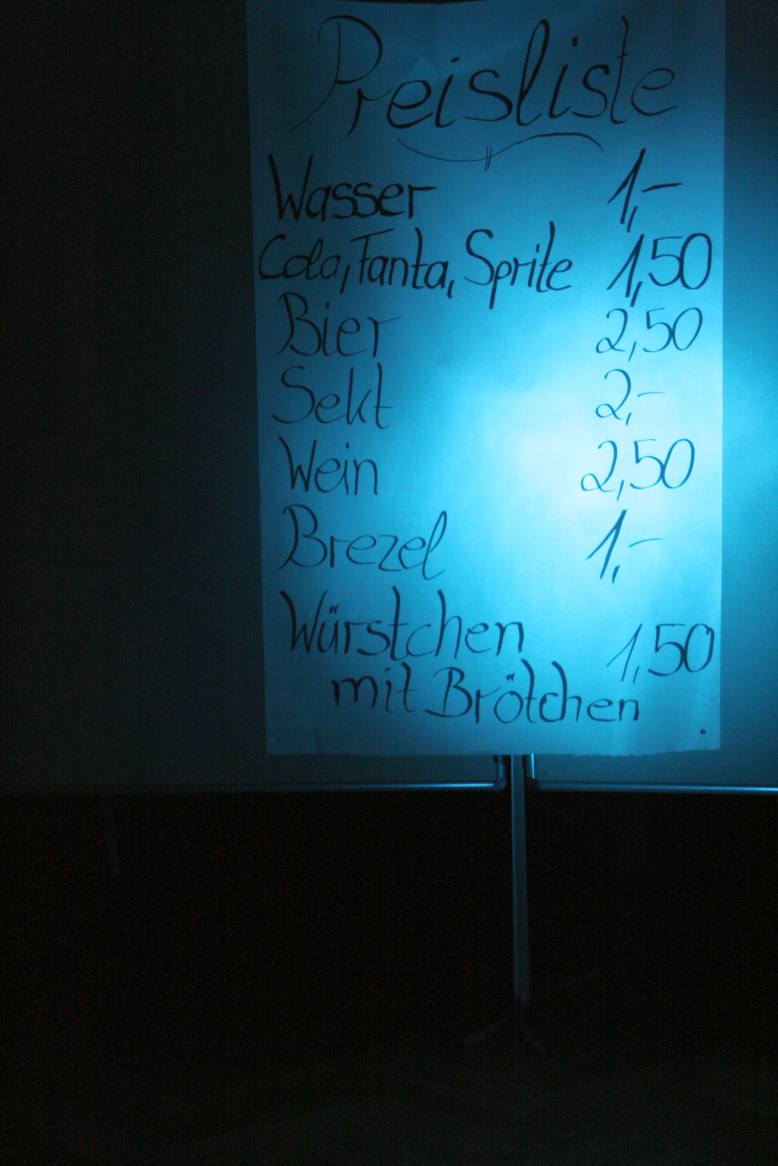 Preisliste
Wasser 1,-
Cola, Fanta, Sprite 1,50
Bier 2,50
Sekt 2,-
Wein 2,50
Brezel 1,-
Würstchen 1,50
mit Brötchen